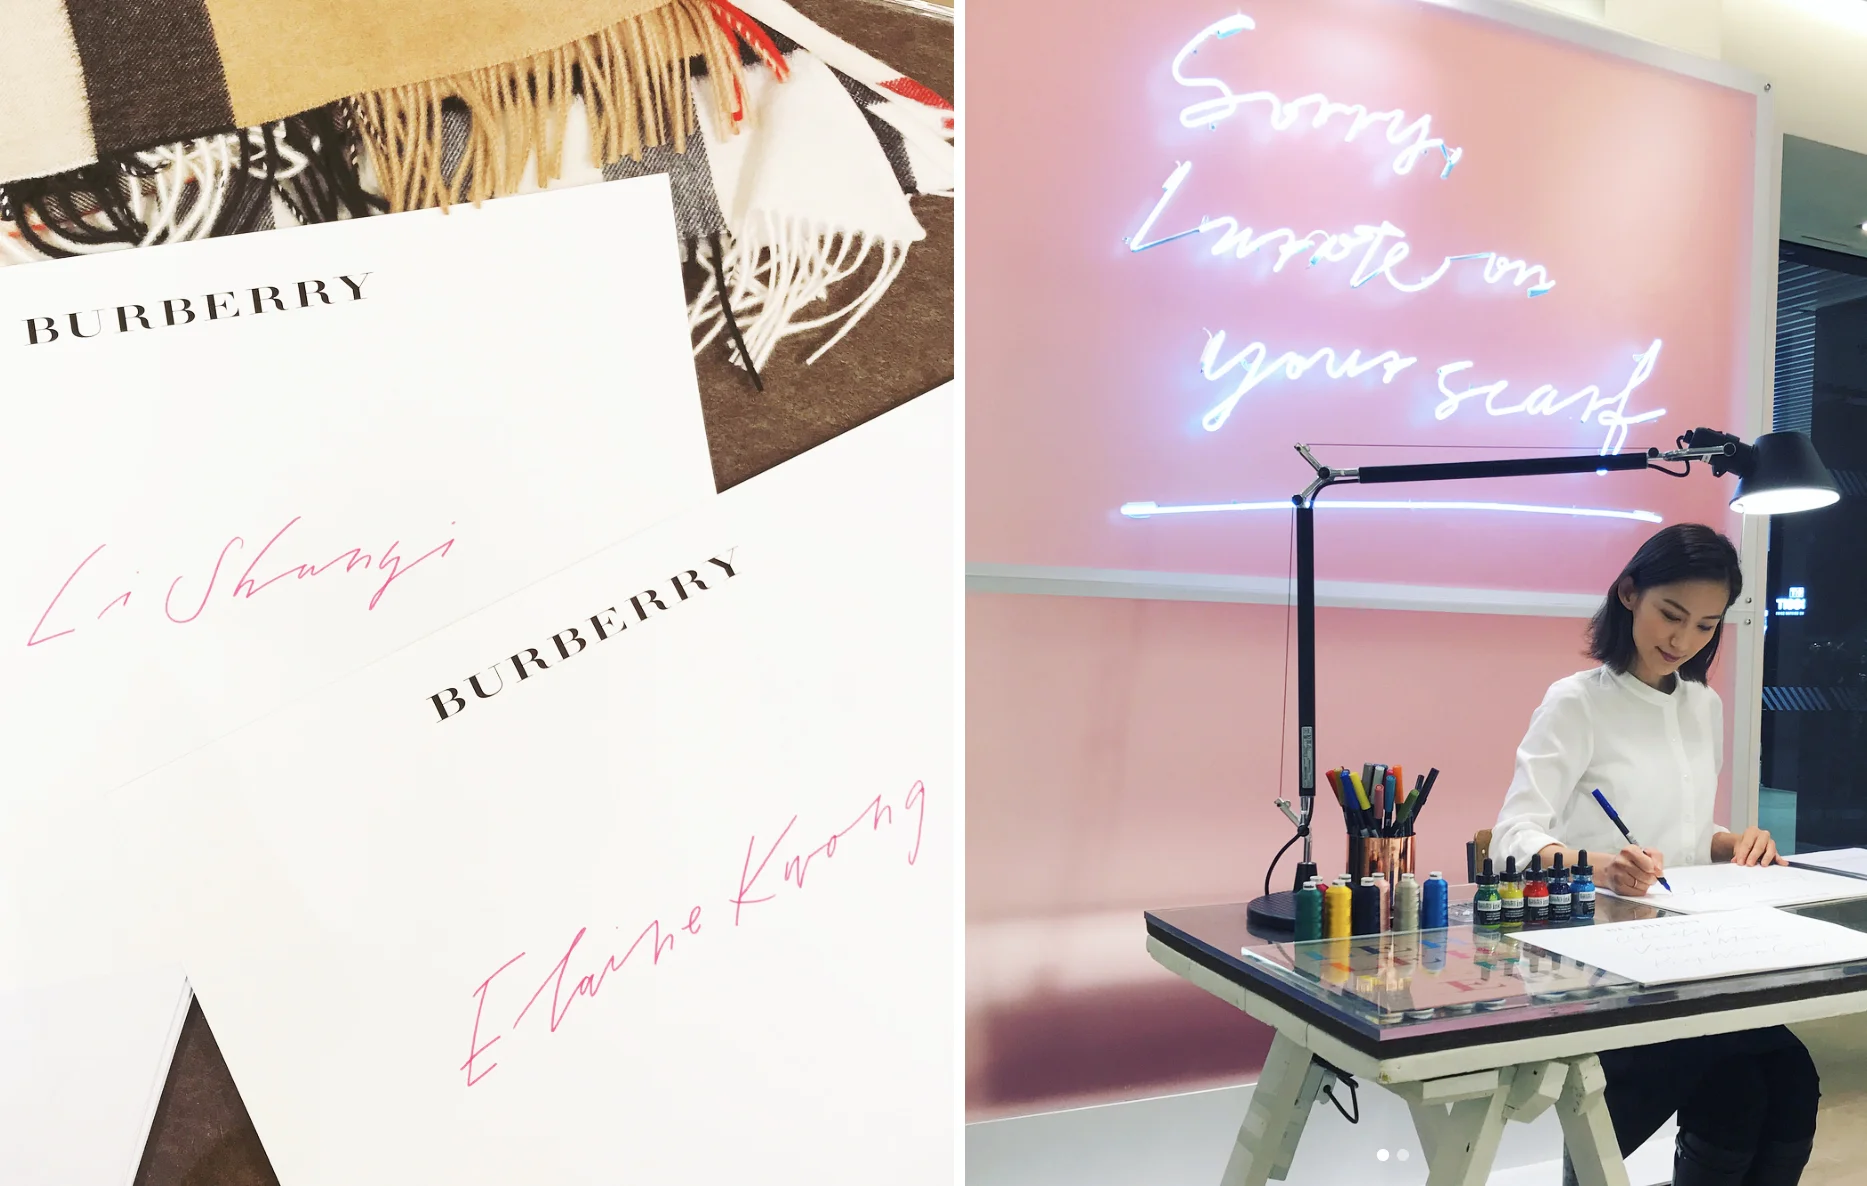 BURBERRY
Li Shungi
BURBERRY
Elaine Kwong
Sorry,
I wrote on
your scarf